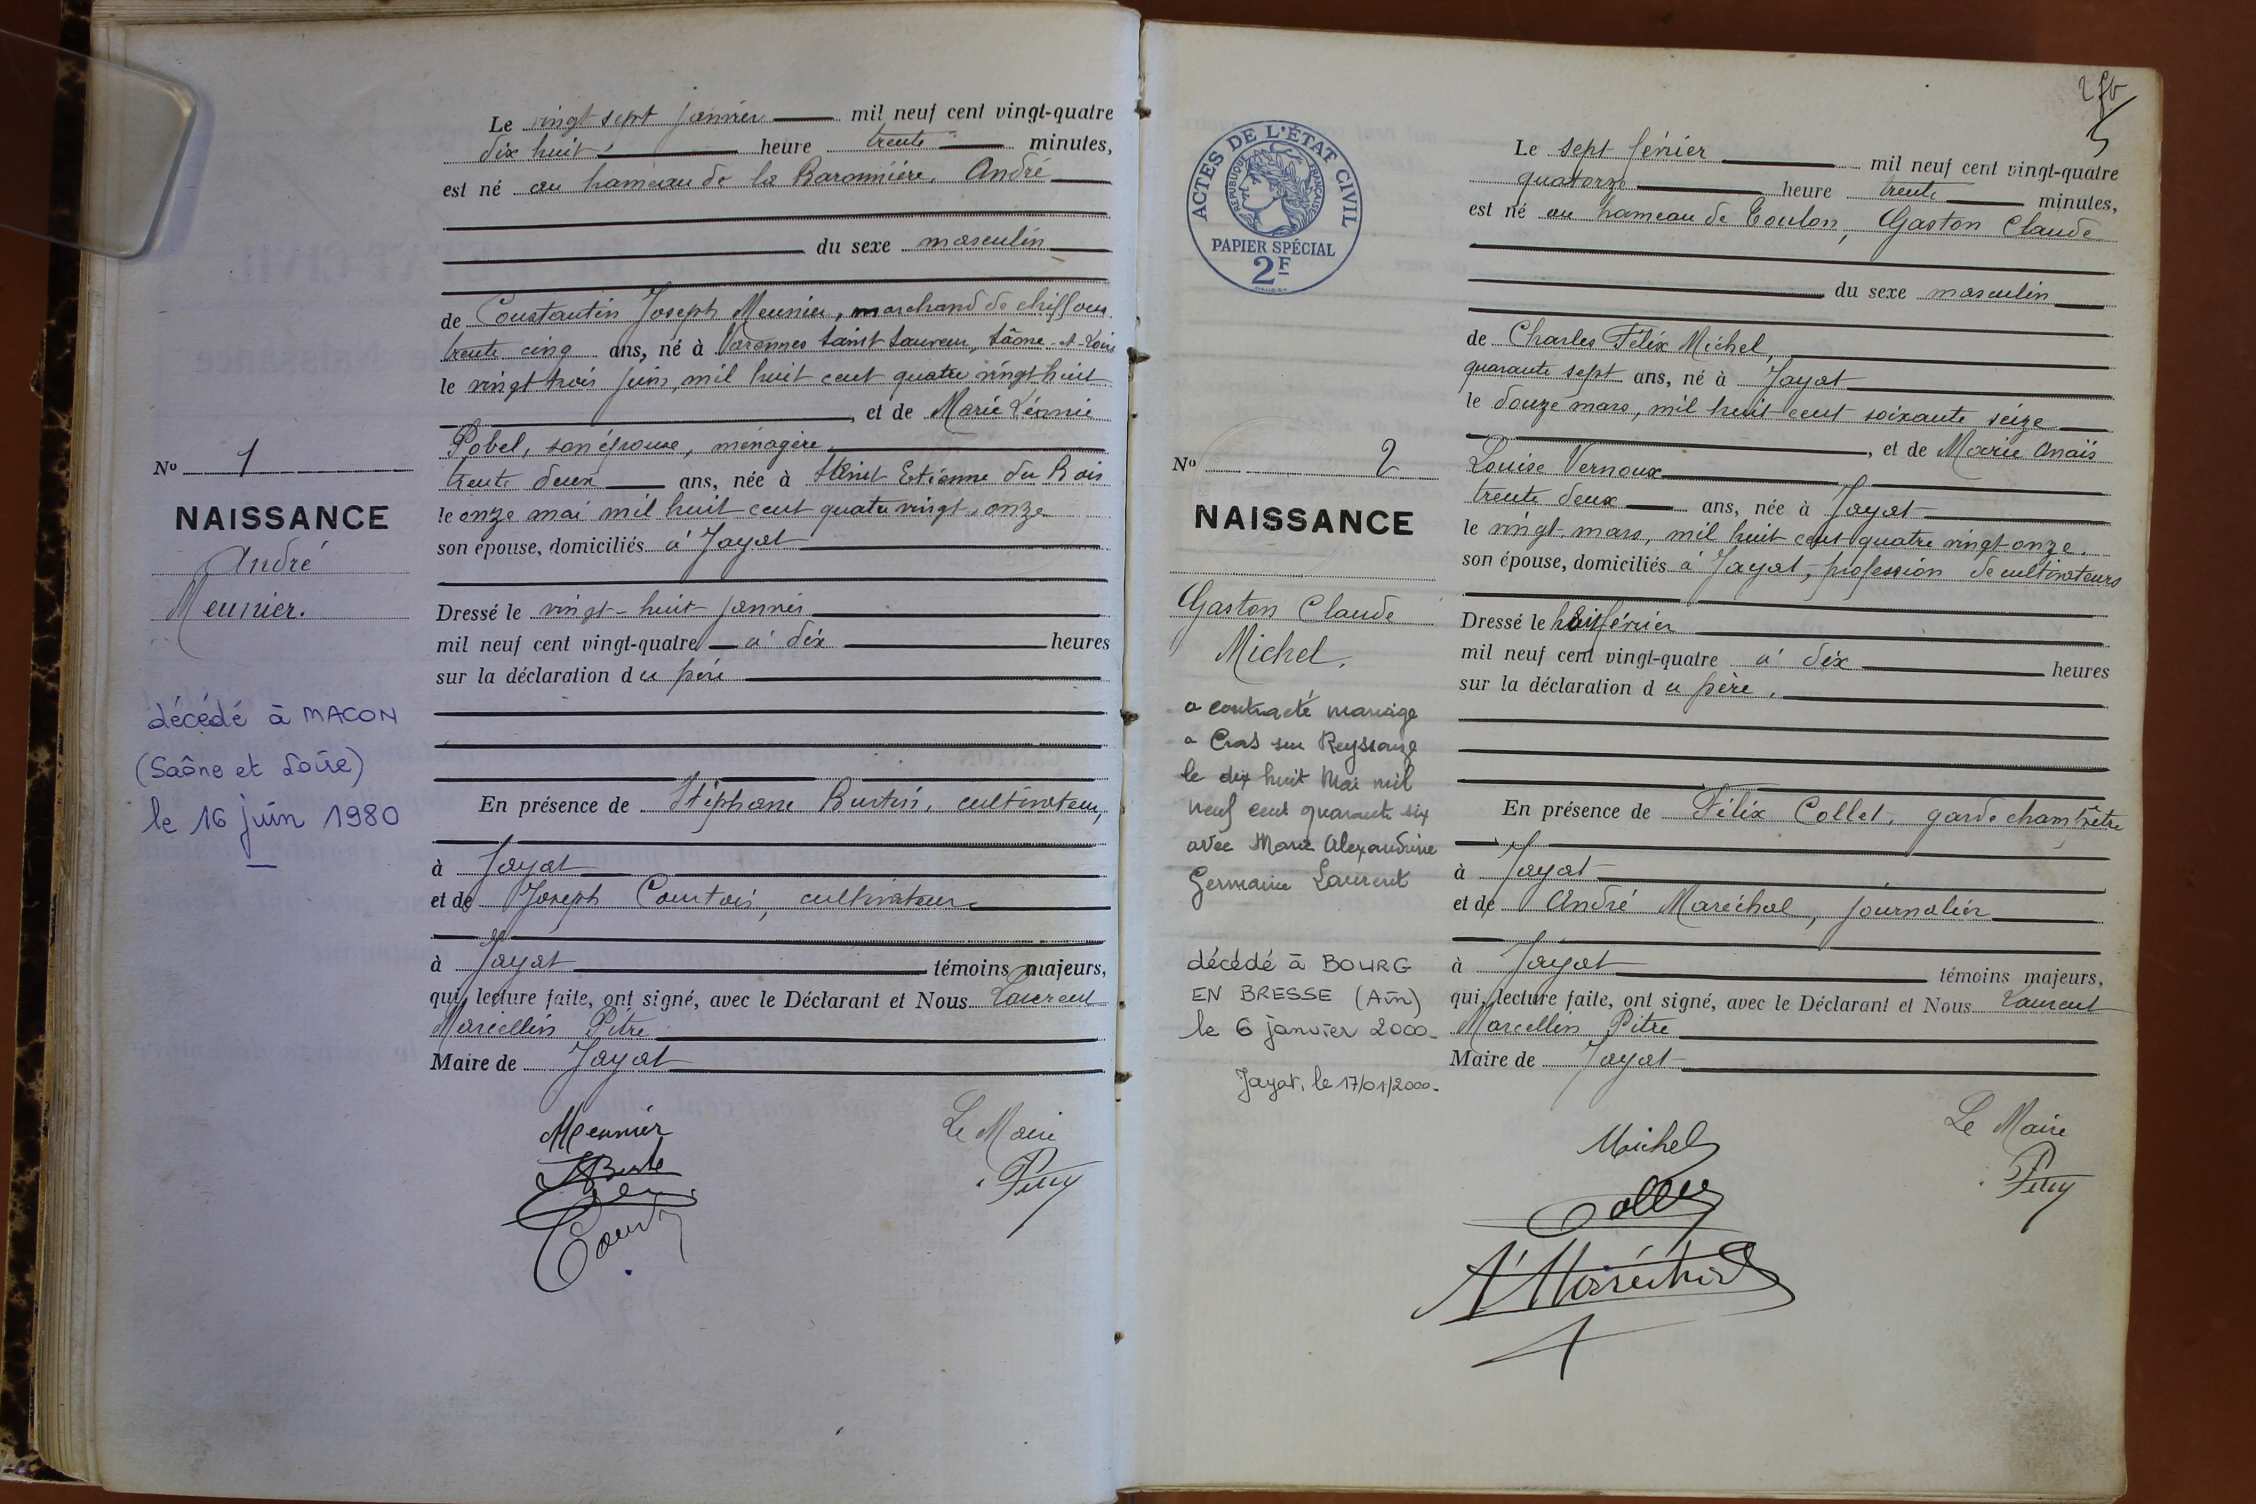 Le vingt sept janvier mil neuf cent vingt-quatre
dix huit heure trente minutes,
est né au hameau de la Baronnière, André
du sexe masculin
de Constantin Joseph Meunier, marchand de chiffons
trente cinq ans, né à Varennes Saint Sauveur, Saône-et-Loire
le vingt trois juin, mil huit cent quatre vingt huit
, et de Marie Léonie
Pobel, son épouse, ménagère
trente deux ans, née à Saint Etienne du Bois
le onze mai mil huit cent quatre vingt onze
son épouse, domiciliés à Jayat
Dressé le vingt-huit janvier
mil neuf cent vingt-quatre à dix heures
sur la déclaration du père
En présence de Stéphane Burtin, cultivateur,
à Jayat
et de Joseph Courtois, cultivateur
à Jayat témoins majeurs,
qui, lecture faite, ont signé, avec le Déclarant et Nous Laurent
Marcellin Pitre
Maire de Jayat
No 1
NAISSANCE
André
Meunier.
décédé à MACON
(Saône et Loire)
le 16 juin 1980
Meunier
Le Maire
ACTES DE L'ÉTAT CIVIL
RÉPUBLIQUE FRANÇAISE
PAPIER SPÉCIAL
2F
Le sept février mil neuf cent vingt-quatre
quatorze heure trente minutes,
est né au hameau de Toulon, Gaston Claude
du sexe masculin
de Charles Félix Michel,
quarante sept ans, né à Jayat
le douze mars, mil huit cent soixante seize
, et de Marie Anaïs
Louise Vernoux
trente deux ans, née à Jayat
le vingt mars, mil huit cent quatre vingt onze.
son épouse, domiciliés à Jayat, profession de cultivateurs
Dressé le huit février
mil neuf cent vingt-quatre à dix heures
sur la déclaration du père.
En présence de Félix Collet, garde champêtre
à Jayat
et de André Maréchal, journalier
à Jayat témoins majeurs,
qui, lecture faite, ont signé, avec le Déclarant et Nous Laurent
Marcellin Pitre
Maire de Jayat
No 2
NAISSANCE
Gaston Claude
Michel.
a contracté mariage
a Cras sur Reyssouze
le dix huit Mai mil
neuf cent quarante six
avec Marie Alexandrine
Germaine Laurent
décédé à BOURG
EN BRESSE (Ain)
le 6 janvier 2000.
Jayat, le 17/01/2000.
Michel
Le Maire
A Maréchal